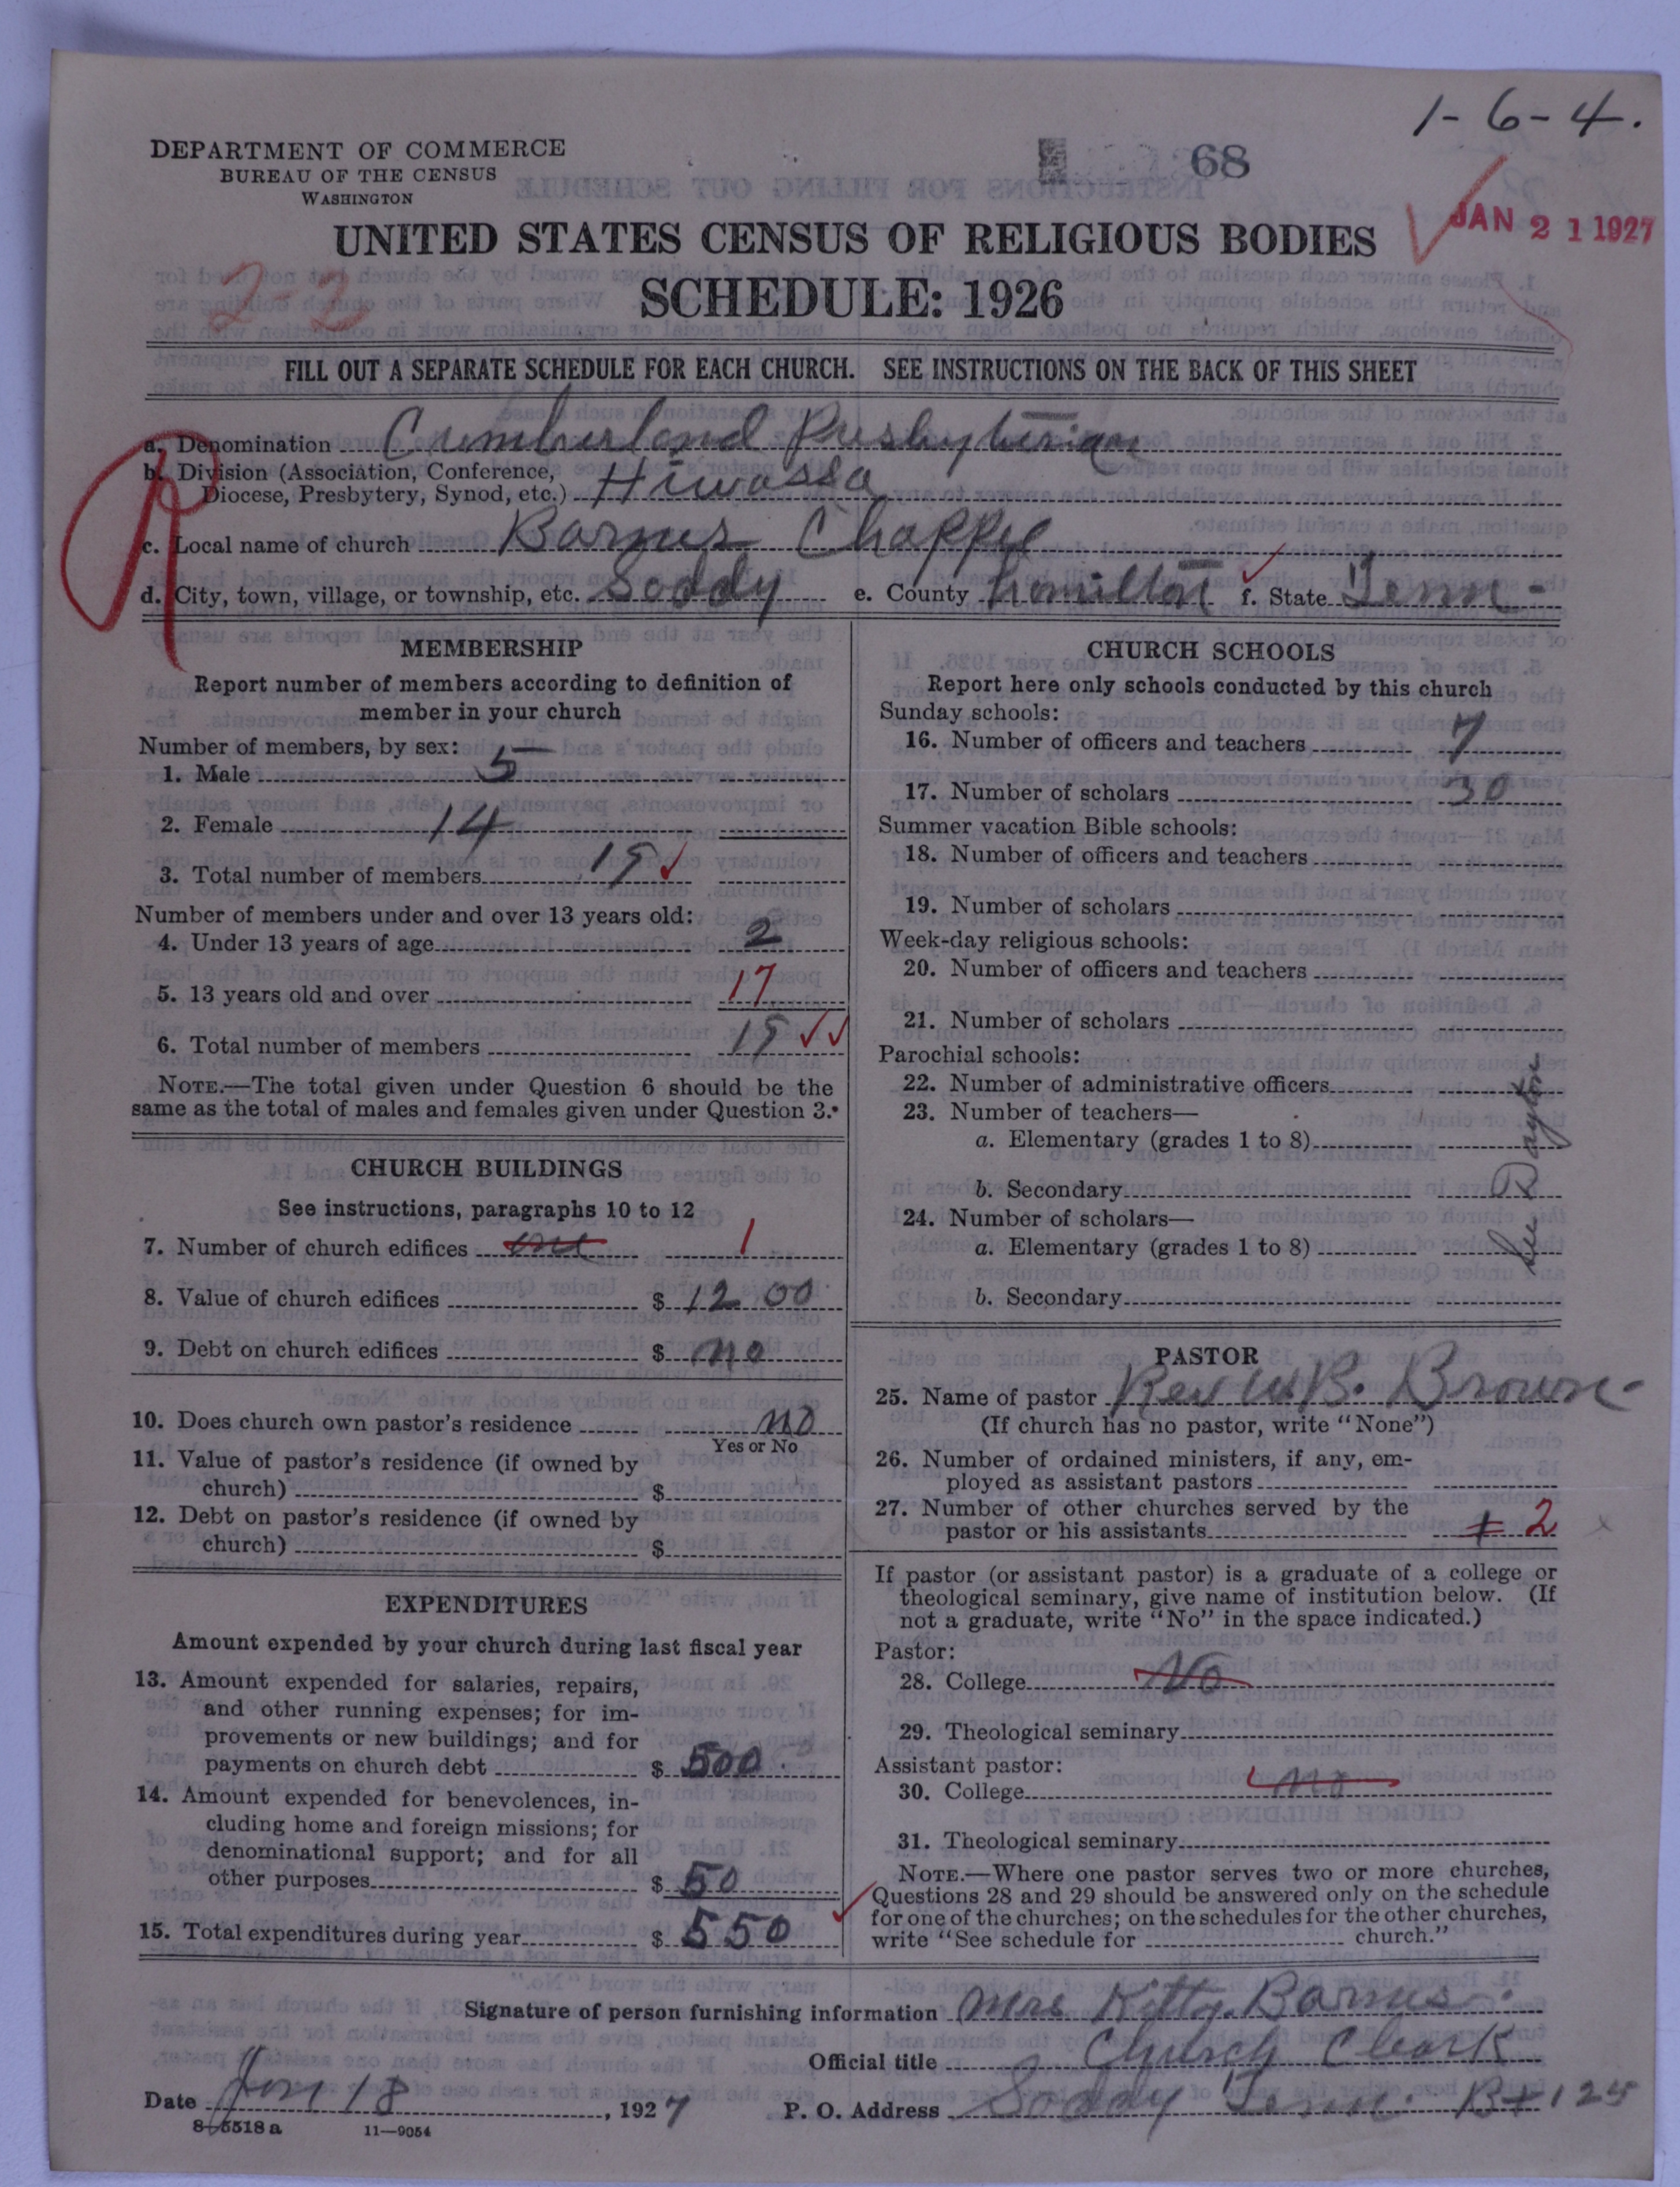 1-6-4.
DEPARTMENT OF COMMERCE
BUREAU OF THE CENSUS
WASHINGTON
68
JAN 21 1927
UNITED STATES CENSUS OF RELIGIOUS BODIES
SCHEDULE: 1926
2-2
FILL OUT A SEPARATE SCHEDULE FOR EACH CHURCH. SEE INSTRUCTIONS ON THE BACK OF THIS SHEET
a. Denomination Cumberland Presbyterian
b. Division (Association, Conference,
Diocese, Presbytery, Synod, etc.) Hiwassa
c. Local name of church Barnes Chappel
d. City, town, village, or township, etc. Soddy e. County hamilton f. State Tenn-
MEMBERSHIP
Report number of members according to definition of
member in your church
Number of members, by sex:
1. Male 5
2. Female 14
3. Total number of members 19
Number of members under and over 13 years old:
4. Under 13 years of age 2
5. 13 years old and over 17
6. Total number of members 19
NOTE.—The total given under Question 6 should be the
same as the total of males and females given under Question 3.
CHURCH BUILDINGS
See instructions, paragraphs 10 to 12
7. Number of church edifices one 1
8. Value of church edifices $ 1200
9. Debt on church edifices $ no
10. Does church own pastor's residence no
Yes or No
11. Value of pastor's residence (if owned by
church) $
12. Debt on pastor's residence (if owned by
church) $
EXPENDITURES
Amount expended by your church during last fiscal year
13. Amount expended for salaries, repairs,
and other running expenses; for im-
provements or new buildings; and for
payments on church debt $ 500
14. Amount expended for benevolences, in-
cluding home and foreign missions; for
denominational support; and for all
other purposes $ 50
15. Total expenditures during year $ 550
CHURCH SCHOOLS
Report here only schools conducted by this church
Sunday schools:
16. Number of officers and teachers 7
17. Number of scholars 30
Summer vacation Bible schools:
18. Number of officers and teachers
19. Number of scholars
Week-day religious schools:
20. Number of officers and teachers
21. Number of scholars
Parochial schools:
22. Number of administrative officers
23. Number of teachers—
a. Elementary (grades 1 to 8)
b. Secondary
24. Number of scholars—
a. Elementary (grades 1 to 8)
b. Secondary
See Dayton
PASTOR
25. Name of pastor Rev W.B. Brown
(If church has no pastor, write "None")
26. Number of ordained ministers, if any, em-
ployed as assistant pastors
27. Number of other churches served by the
pastor or his assistants 2
If pastor (or assistant pastor) is a graduate of a college or
theological seminary, give name of institution below. (If
not a graduate, write "No" in the space indicated.)
Pastor:
28. College No
29. Theological seminary
Assistant pastor:
30. College no
31. Theological seminary
NOTE.—Where one pastor serves two or more churches,
Questions 28 and 29 should be answered only on the schedule
for one of the churches; on the schedules for the other churches,
write "See schedule for church."
Signature of person furnishing information Mrs Kitty Barnes.
Official title Church Cleark
Date Jan 18, 1927 P. O. Address Soddy Tenn. Bx 125
8-5518a 11—9054